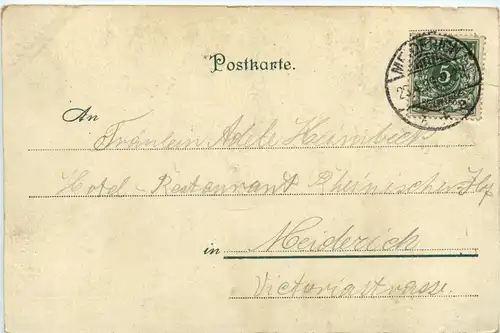 Postkarte.
MEIDERICH
5
An
Fräulein Adele Heimbach
Hotel-Restaurant Rheinischer Hof
in Meiderich
Victoriastrasse.